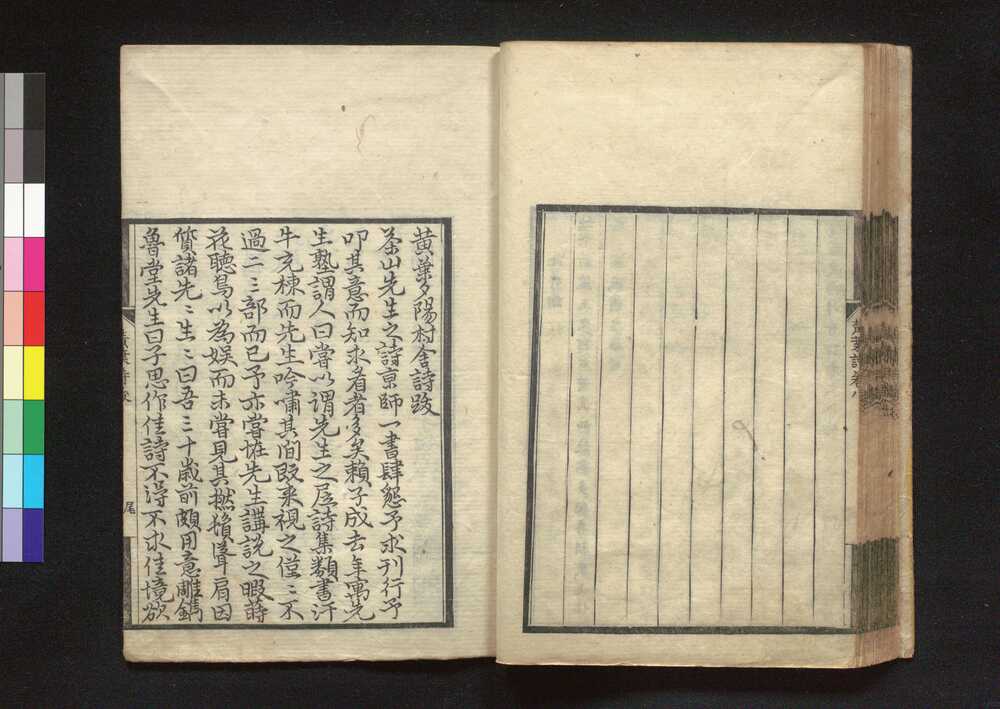 黄葉夕陽村舎詩跋
茶山先生之詩京師一書肆慫予求刊行予
叩其意而知求者衆矣頼子成去年寓先
生塾謂人曰嘗以謂先生之居詩集類書汗
牛充棟而先生吟嘯其間既来視之僅〻不
過二三部而已予亦嘗恠先生講説之暇蒔
花聴鳥以為娯而未嘗見其撚鬚聳肩因
質諸先〻生〻曰吾三十歳前頗用意雕鐫
魯堂先生曰子思作佳詩不得不求佳境欲
尾
黄葉詩巻八